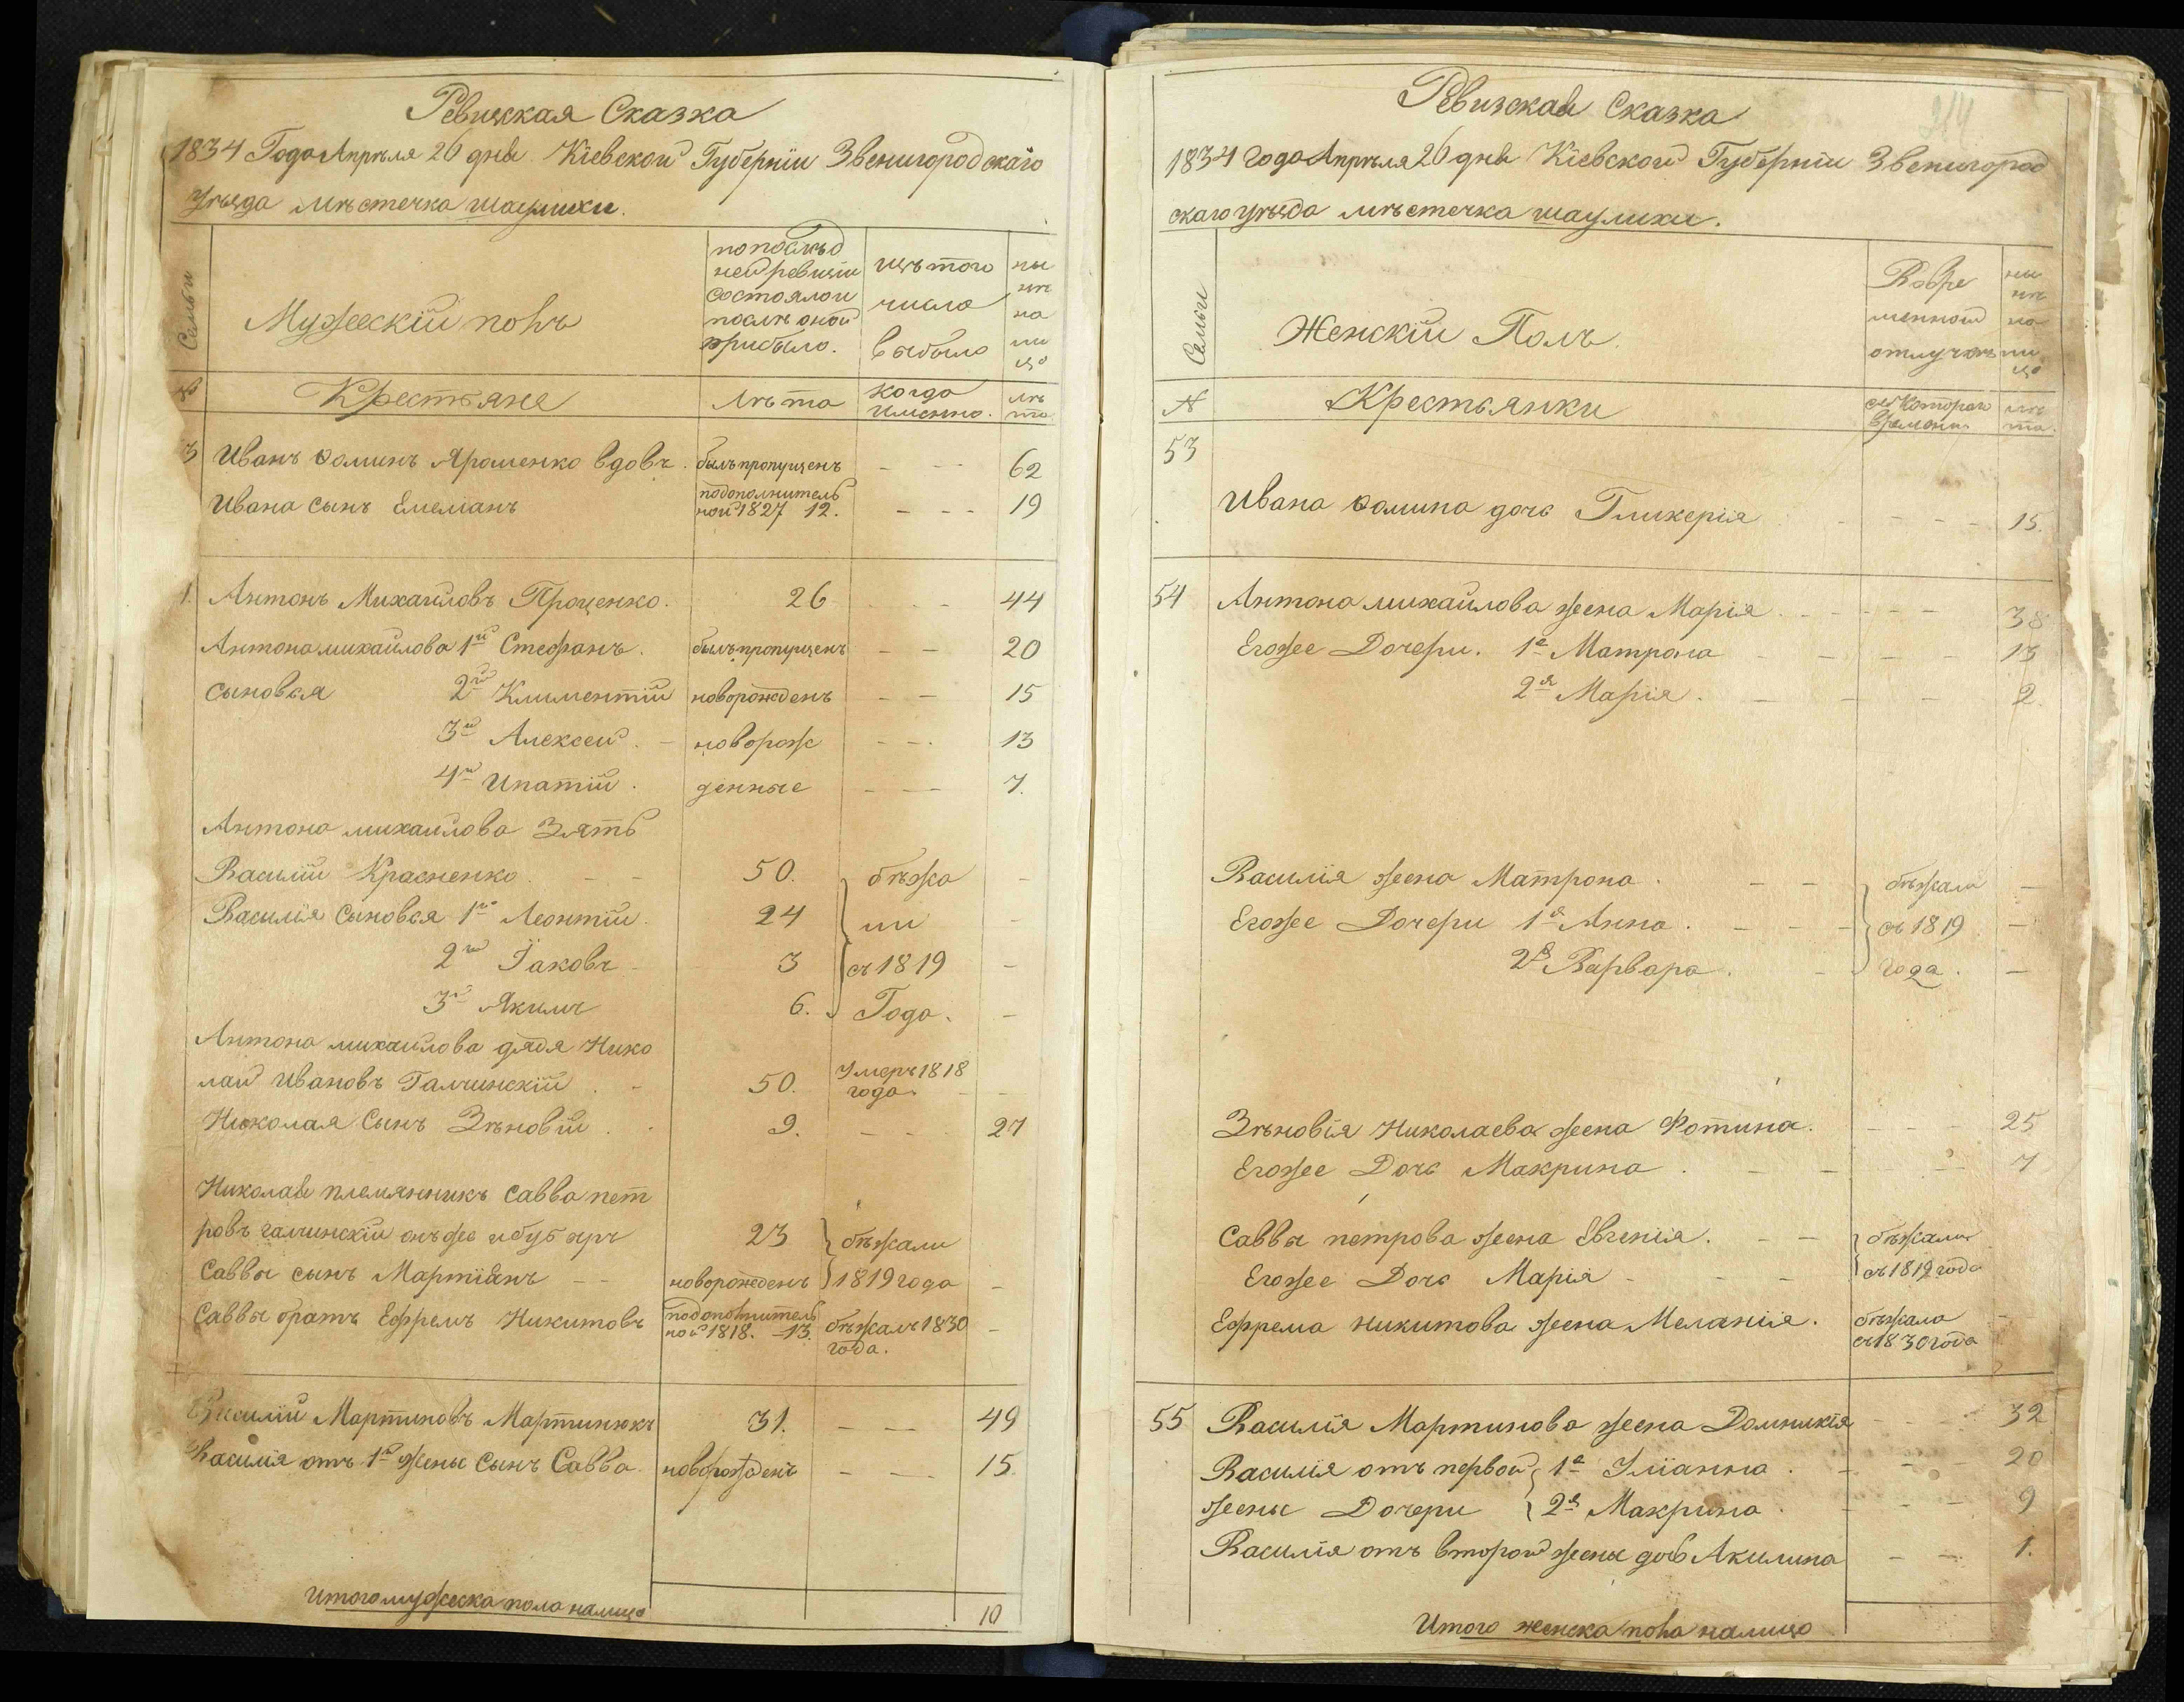 Ревизская Сказка
1834 Года Апреля 26 дня Кіевской Губерніи Звенигородскаго
Уѣзда мѣстечка шаулихи.
Семьи
Мужескій полъ
по послѣд
ней ревизіи
состояло и
послѣ оной
прибыло.
изъ того
числа
выбыло
ны
нѣ
на
ли
цо
№
Крестьяне
лѣта
когда
именно.
лѣ
та
3 Иванъ Ѳоминъ Ярошенко вдовъ. былъ пропущенъ - - - 62
Ивана сынъ Емеліанъ
по дополнитель
ной 1827 12. - - - 19
1. Антонъ Михайловъ Проценко. 26 - - - 44
Антона михайлова 1й Стефанъ. былъ пропущенъ - - 20
сыновья 2й Климентій новорожденъ - - 15
3й Алексей. - новорож - - . 13
4й Ипатій. денные - - - 7.
Антона михайлова Зять
Василій Красненко. - - 50. бѣжа -
Василія сыновья 1й Леонтій. 24 ли -
2й Іаковъ - 3 съ 1819 -
3й Якимъ 6. Года. -
Антона михайлова дядя Нико
лай Ивановъ Галчинскій . - 50. Умеръ 1818
года. - -
Николая Сынъ Зѣновій . . 9. - - - 27
Николая племянникъ Савва пет
ровъ галчинскій онъ же и бубяръ 23 бѣжали
Саввы сынъ Мартіанъ - - новорожденъ 1819 года -
Саввы братъ Ефремъ Никитовъ
по дополнитель
ной 1818. - 13. бѣжалъ 1830 -
года.
Василій Мартиновъ Мартинюкъ 31. - - - 49
Василія отъ 1й Жены сынъ Савва. новорожденъ - - - 15.
Итого мужеска пола налицо 10
214
Ревизская Сказка
1834 года Апреля 26 дня Кіевской Губерніи Звенигород
скаго уѣзда мѣстечка шаулихи.
Семьи
Женскій Полъ.
Во вре
менной
отлучкѣ
ны
нѣ
на
ли
цо
№
Крестьянки
съ котораго
времени.
лѣ
та.
53
Ивана Ѳомина дочь Гликерія - - - - 15.
54 Антона михайлова жена Марія - - - - - 38
Егоже Дочери. 1я Матрона - - - - 13
2я Марія. - - - 2.
Василія жена Матрона. - - бѣжали -
Егоже Дочери 1я Анна. - - - съ 1819 -
2я Варвара. - года. -
Зѣновія Николаева жена Фотина. - - - 25
Егоже Дочь Макрина. - - - - 7
Саввы петрова жена Евгенія. - - бѣжали
Егоже Дочь Марія - - - съ 1819 года
Ефрема никитова жена Меланія. бѣжала -
съ 1830 года
55 Василія Мартинова жена Домникія - - - 32
Василія отъ первой 1я Уліанна. - - - 20
жены Дочери 2я Макрина. - - - 9
Василія отъ второй жены дочь Акилина - - 1.
Итого женска пола налицо